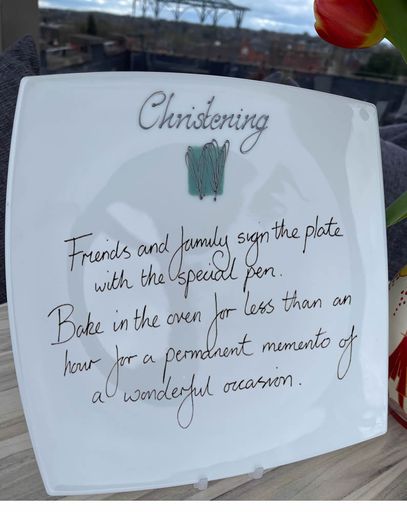 Christening
Friends and family sign the plate
with the special pen.
Bake in the oven for less than an
hour for a permanent memento of
a wonderful occasion.